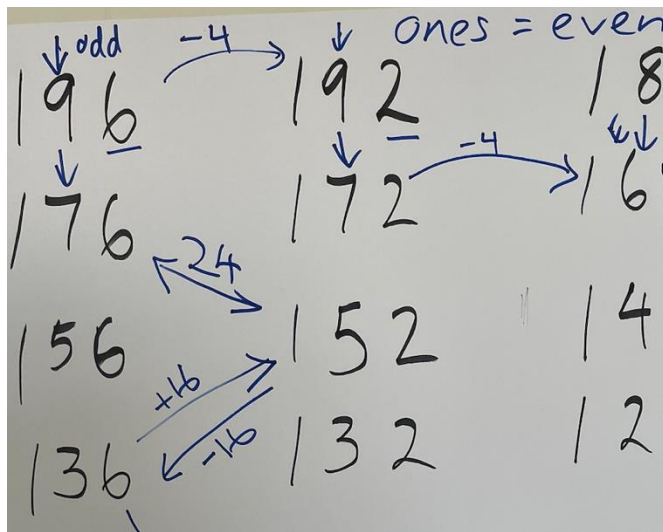 odd -4 ones = even
196 192 18
-4
176 172 16
24
156 152 14
+16
-16
136 132 12